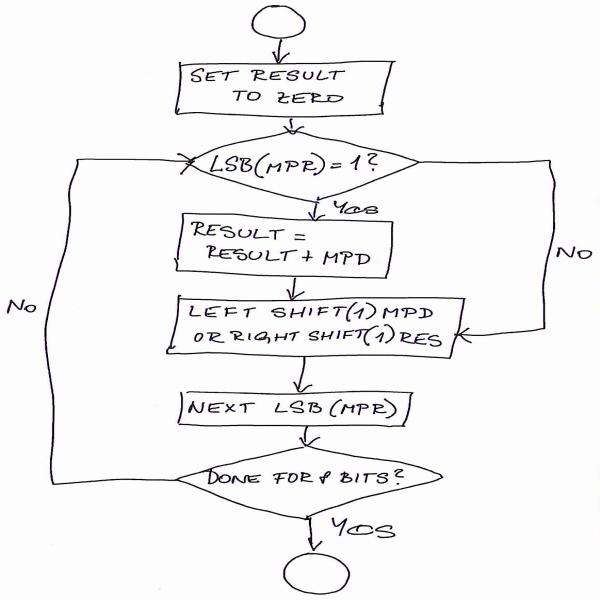 SET RESULT
TO ZERO
LSB(MPR)=1?
YES
RESULT =
RESULT + MPD
NO
LEFT SHIFT(1) MPD
OR RIGHT SHIFT(1) RES
NO
NEXT LSB(MPR)
DONE FOR 8 BITS?
YES